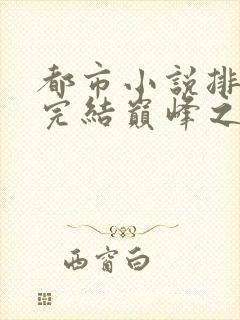 都市小說排
完結巔峰之
西窗白